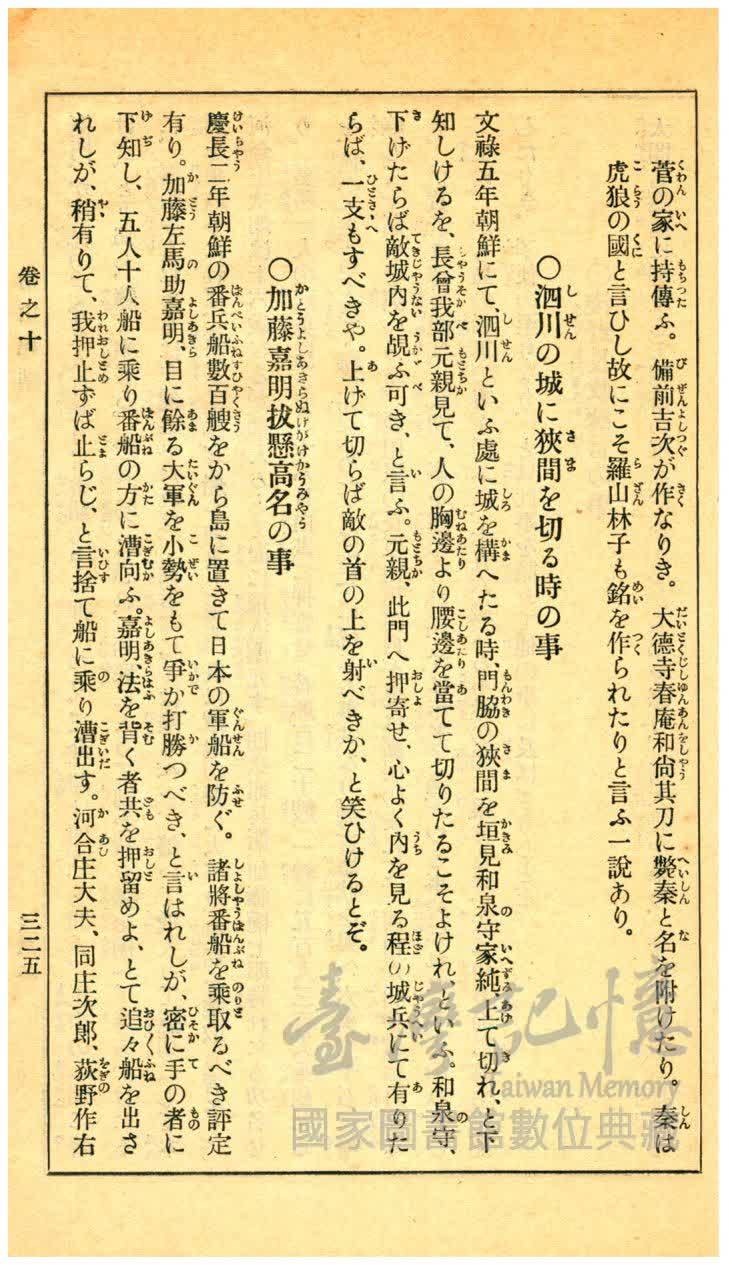 菅の家に持傳ふ。備前吉次が作なりき。大德寺春庵和尙其刀に斃秦と名を附けたり。秦は
虎狼の國と言ひし故にこそ羅山林子も銘を作られたりと言ふ一說あり。
〇泗川の城に狹間を切る時の事
文祿五年朝鮮にて、泗川といふ處に城を構へたる時、門脇の狹間を垣見和泉守家純、上て切れ、と下
知しけるを、長曾我部元親見て、人の胸邊より腰邊を當てて切りたるこそよけれ、といふ。和泉守、
下げたらば敵城內を覘ふ可き、と言ふ。元親、此門へ押寄せ、心よく內を見る程の城兵にて有りた
らば、一支もすべきや。上げて切らば敵の首の上を射べきか、と笑ひけるとぞ。
〇加藤嘉明拔懸高名の事
慶長二年朝鮮の番兵船數百艘をから島に置きて日本の軍船を防ぐ。諸將番船を乘取るべき評定
有り。加藤左馬助嘉明、目に餘る大軍を小勢をもて爭か打勝つべき、と言はれしが、密に手の者に
下知し、五人十人船に乘り番船の方に漕向ふ。嘉明、法を背く者共を押留めよ、とて追々船を出さ
れしが、稍有りて、我押止ずば止らじ、と言捨て船に乘り漕出す。河合庄大夫、同庄次郎、荻野作右
卷之十
三二五
臺灣記憶
Taiwan Memory
國家圖書館數位典藏